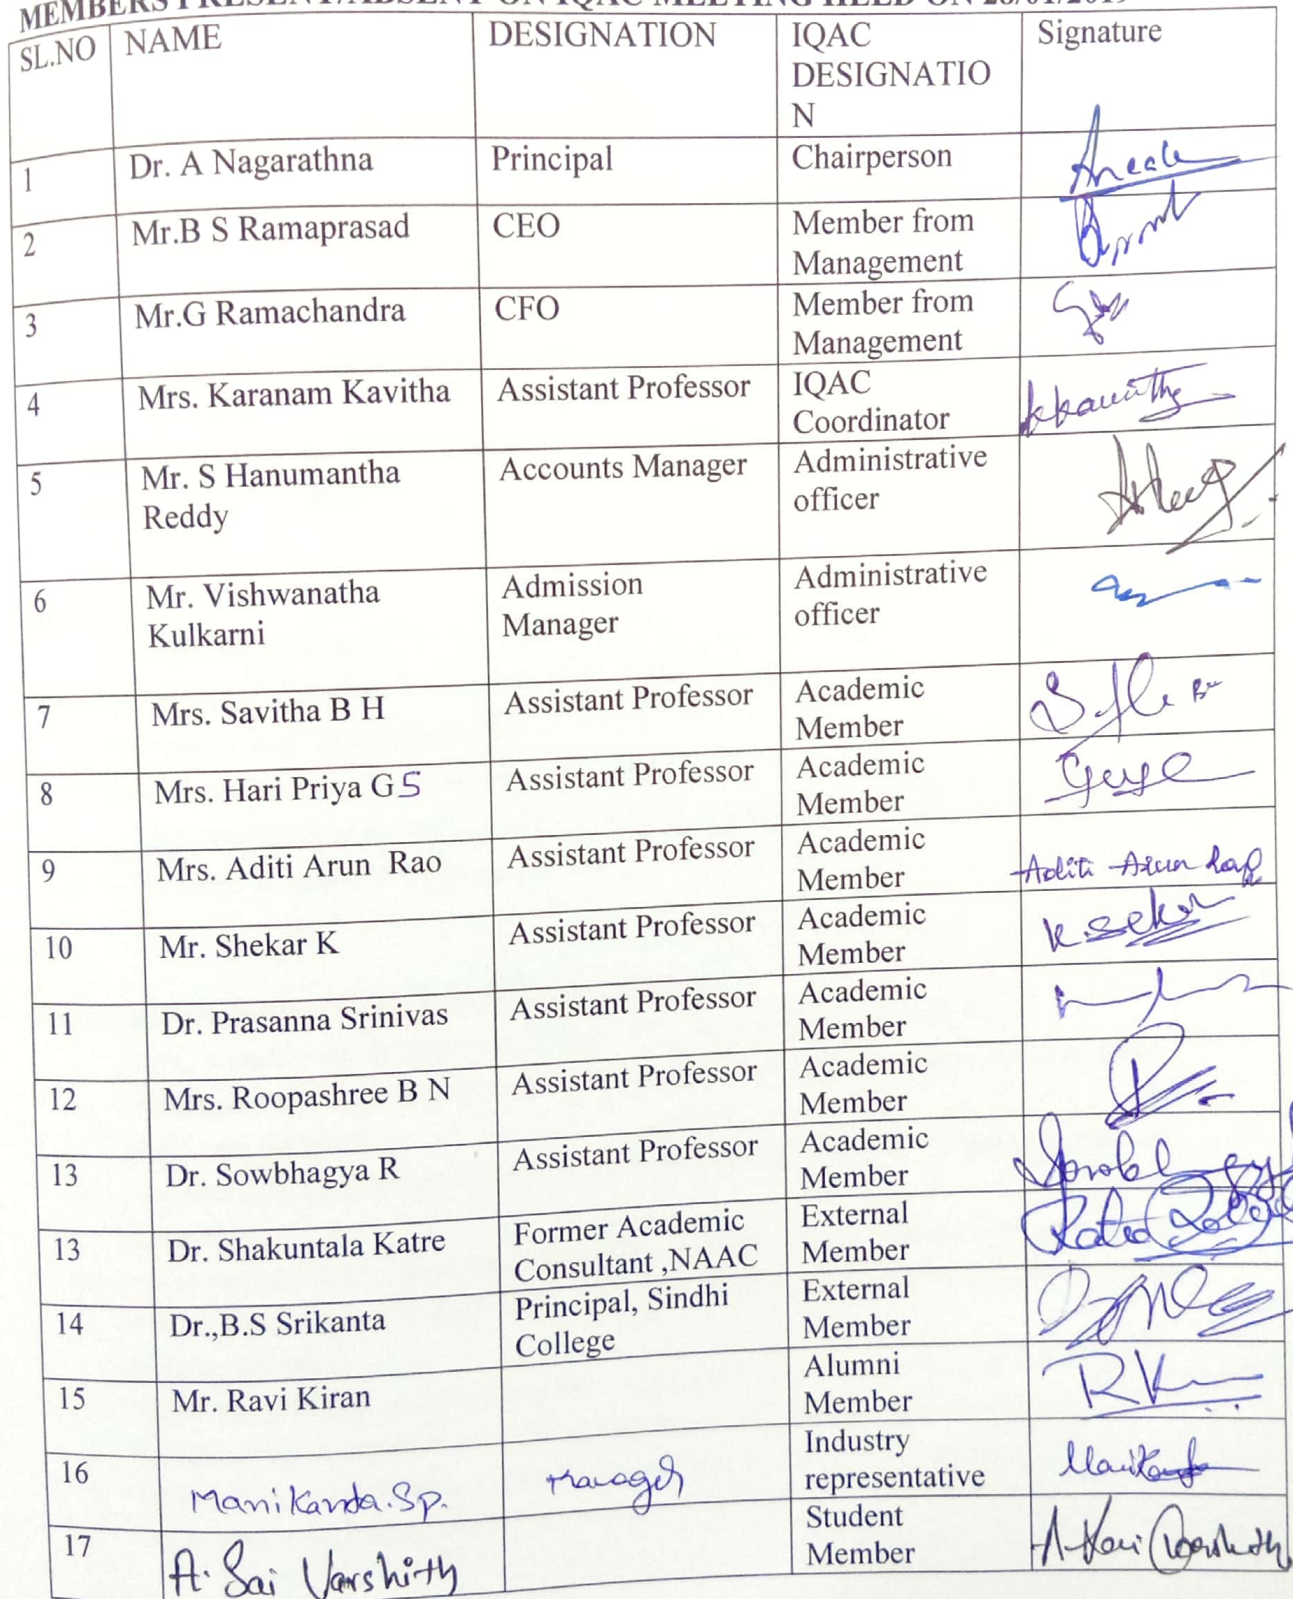 MEMBERS PRESENT/ABSENT ON IQAC MEETING HELD ON 28/01/2019
SL.NO NAME DESIGNATION IQAC DESIGNATIO N Signature
1 Dr. A Nagarathna Principal Chairperson
2 Mr.B S Ramaprasad CEO Member from Management
3 Mr.G Ramachandra CFO Member from Management
4 Mrs. Karanam Kavitha Assistant Professor IQAC Coordinator kkavitha
5 Mr. S Hanumantha Reddy Accounts Manager Administrative officer
6 Mr. Vishwanatha Kulkarni Admission Manager Administrative officer
7 Mrs. Savitha B H Assistant Professor Academic Member
8 Mrs. Hari Priya G S Assistant Professor Academic Member
9 Mrs. Aditi Arun Rao Assistant Professor Academic Member Aditi Arun Rao
10 Mr. Shekar K Assistant Professor Academic Member K. Sekar
11 Dr. Prasanna Srinivas Assistant Professor Academic Member
12 Mrs. Roopashree B N Assistant Professor Academic Member
13 Dr. Sowbhagya R Assistant Professor Academic Member
13 Dr. Shakuntala Katre Former Academic Consultant ,NAAC External Member
14 Dr.,B.S Srikanta Principal, Sindhi College External Member
15 Mr. Ravi Kiran Alumni Member
16 Manikanda.Sp. Manager Industry representative
17 A. Sai Varshith Student Member